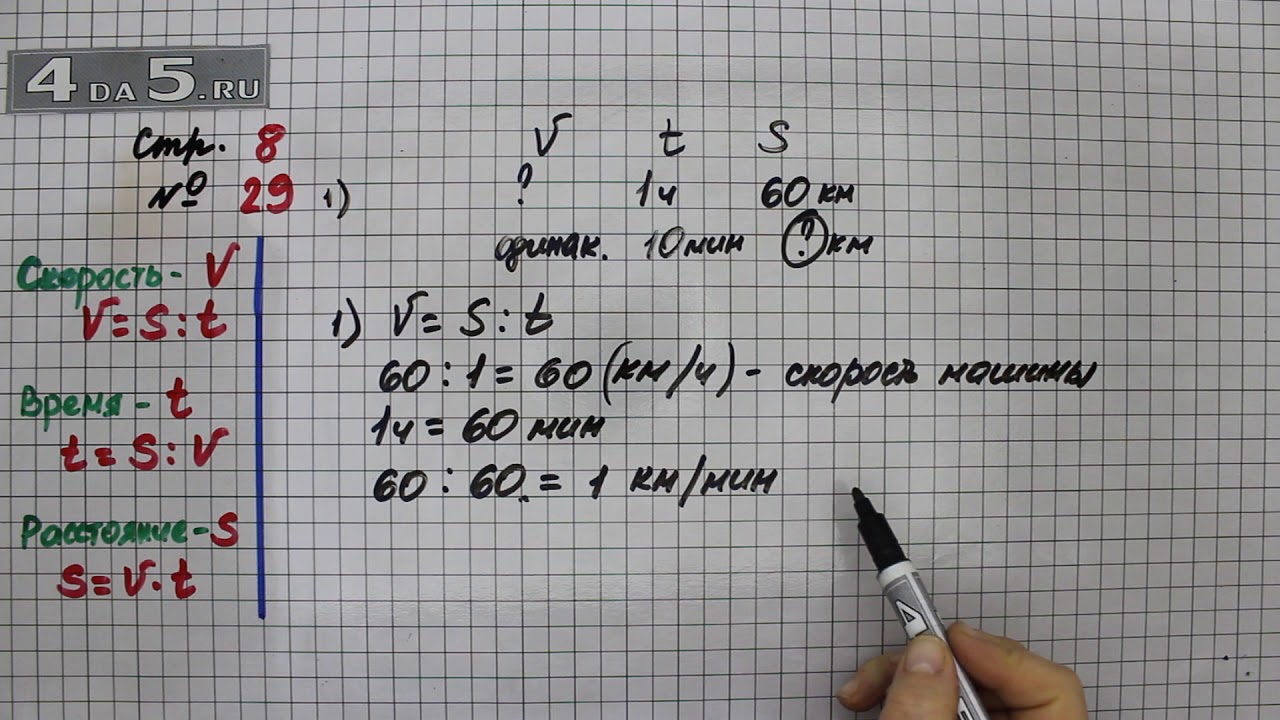 4DA5.RU
Стр. 8
№ 29
Скорость - V
V = S : t
Время - t
t = S : V
Расстояние - S
S = V · t
V t S
1) ? 1ч 60 км
одинак. 10 мин ? км
1) V = S : t
60 : 1 = 60 (км/ч) - скорость машины
1ч = 60 мин
60 : 60 = 1 км/мин